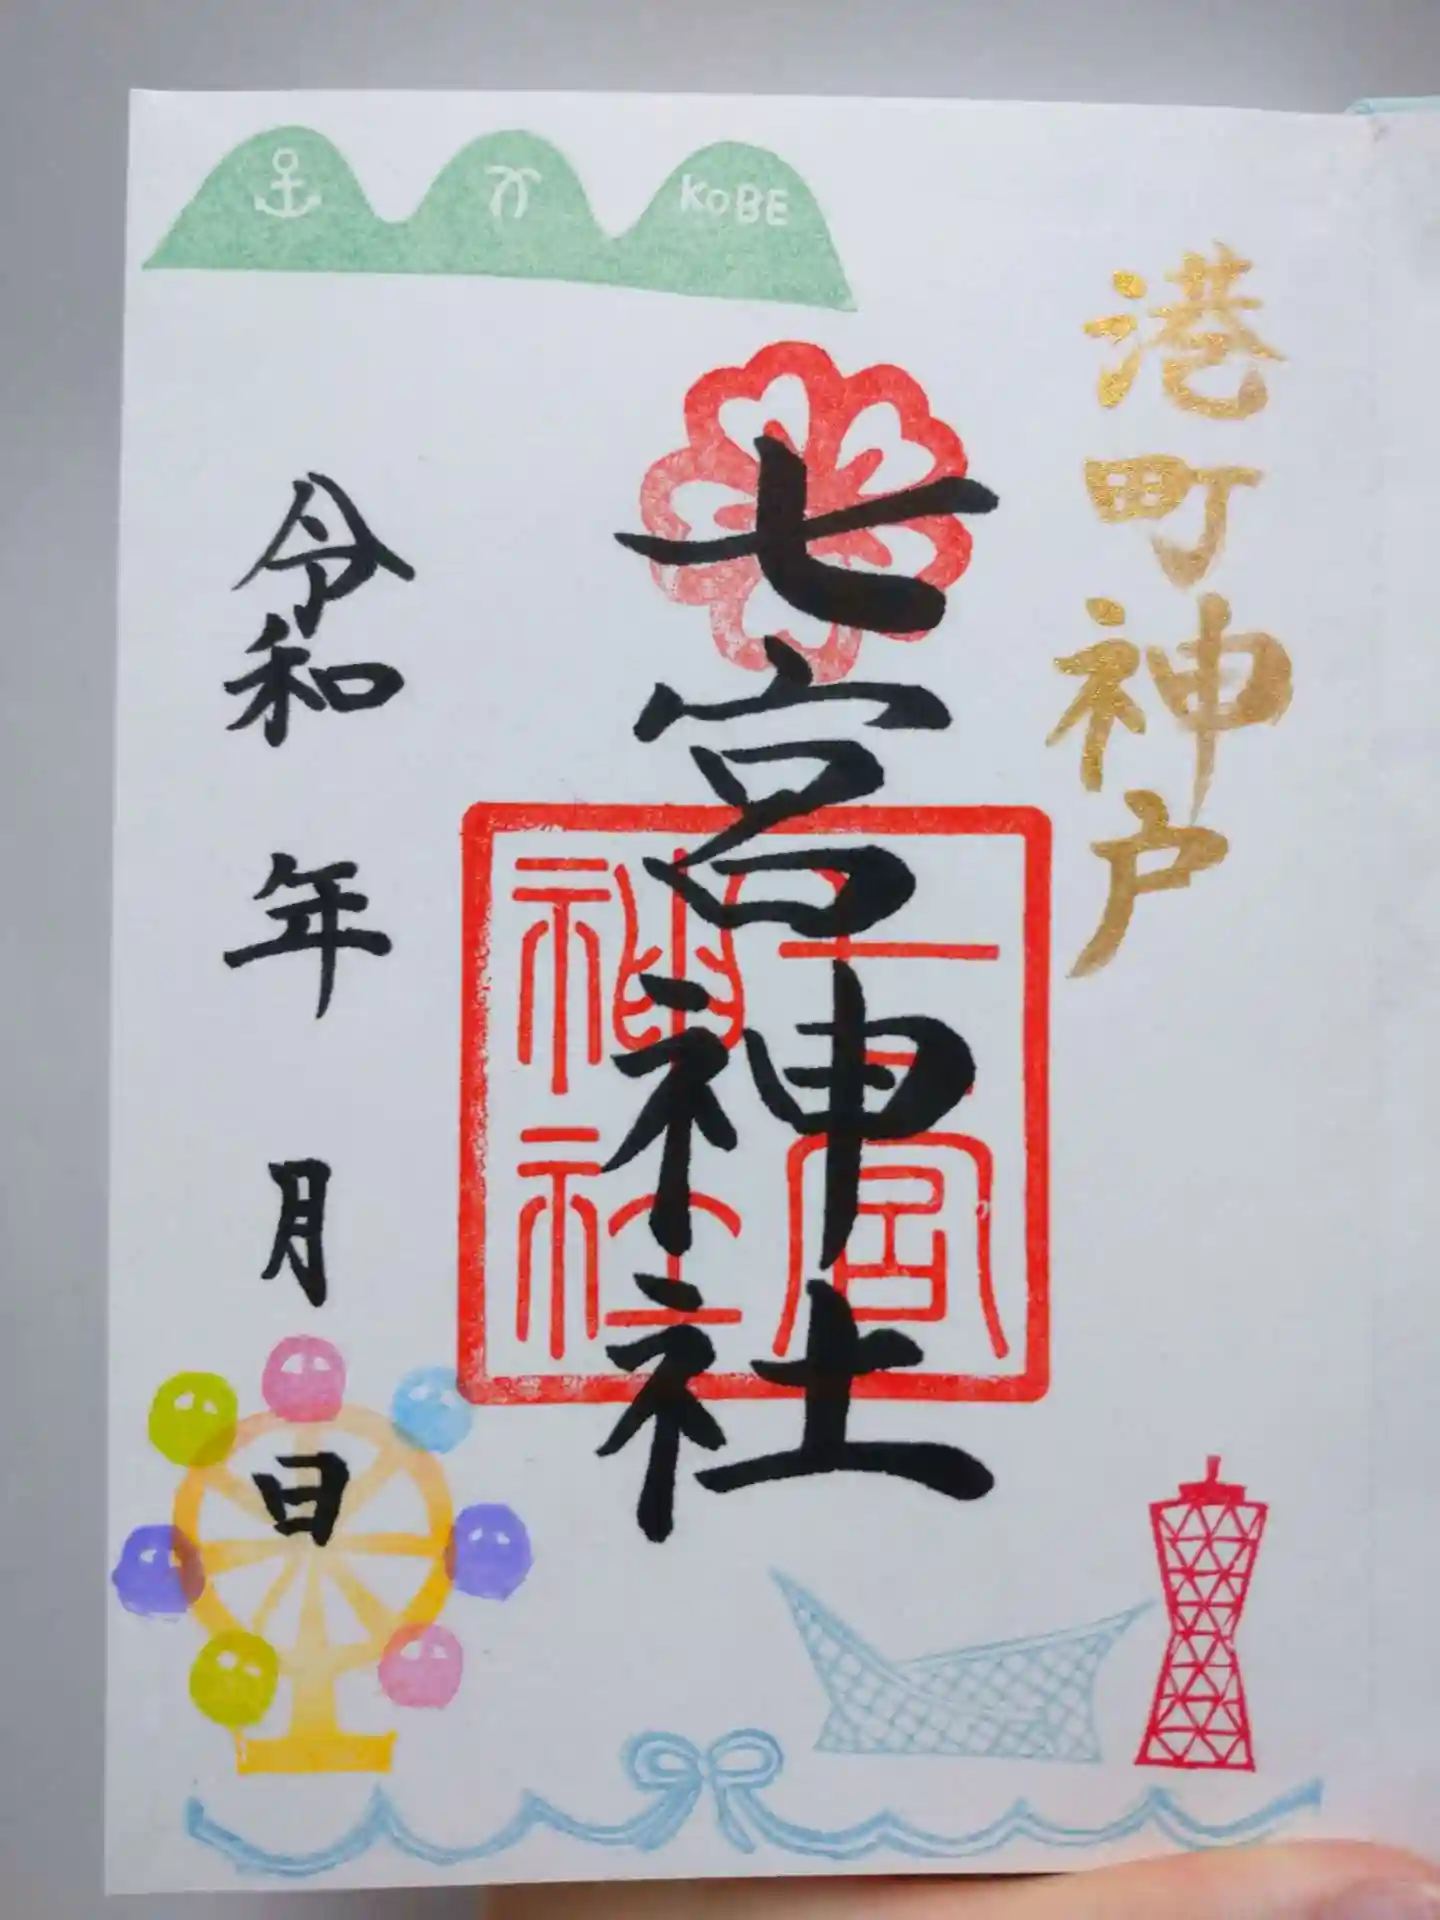 KOBE
港町神戸
七宮神社
七宮神社
令和 年 月 日